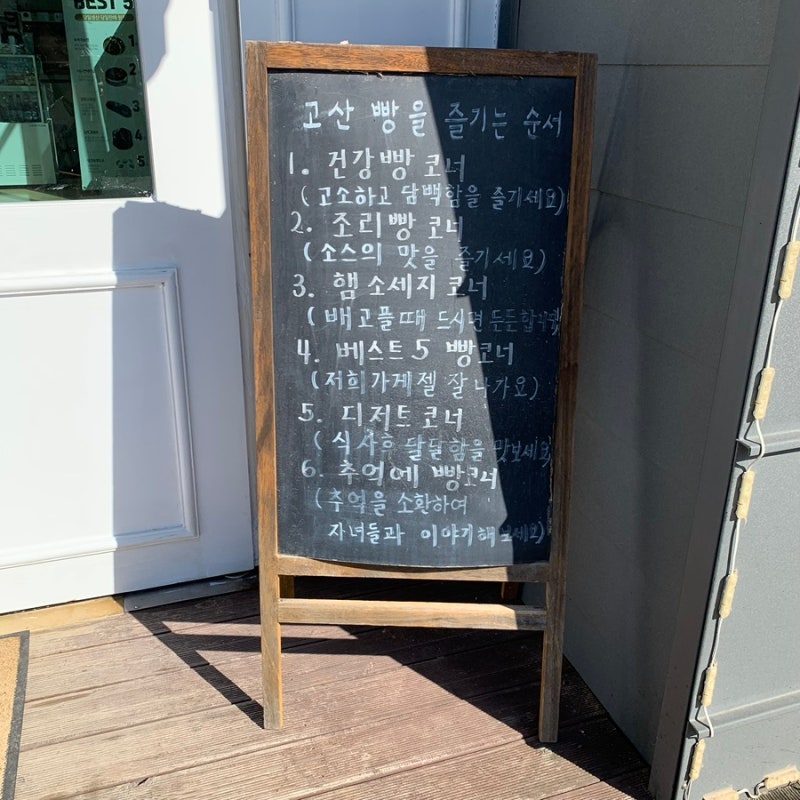 BEST 5
1
2
3
4
5
고산 빵을 즐기는 순서
1. 건강빵 코너
(고소하고 담백함을 즐기세요)
2. 조리빵 코너
(소스의 맛을 즐기세요)
3. 햄 소세지 코너
(배고플때 드시면 든든합니다)
4. 베스트5 빵코너
(저희가게젤 잘나가요)
5. 디저트 코너
(식사후 달달함을 맛보세요)
6. 추억에 빵코너
(추억을 소환하여
자녀들과 이야기해보세요)